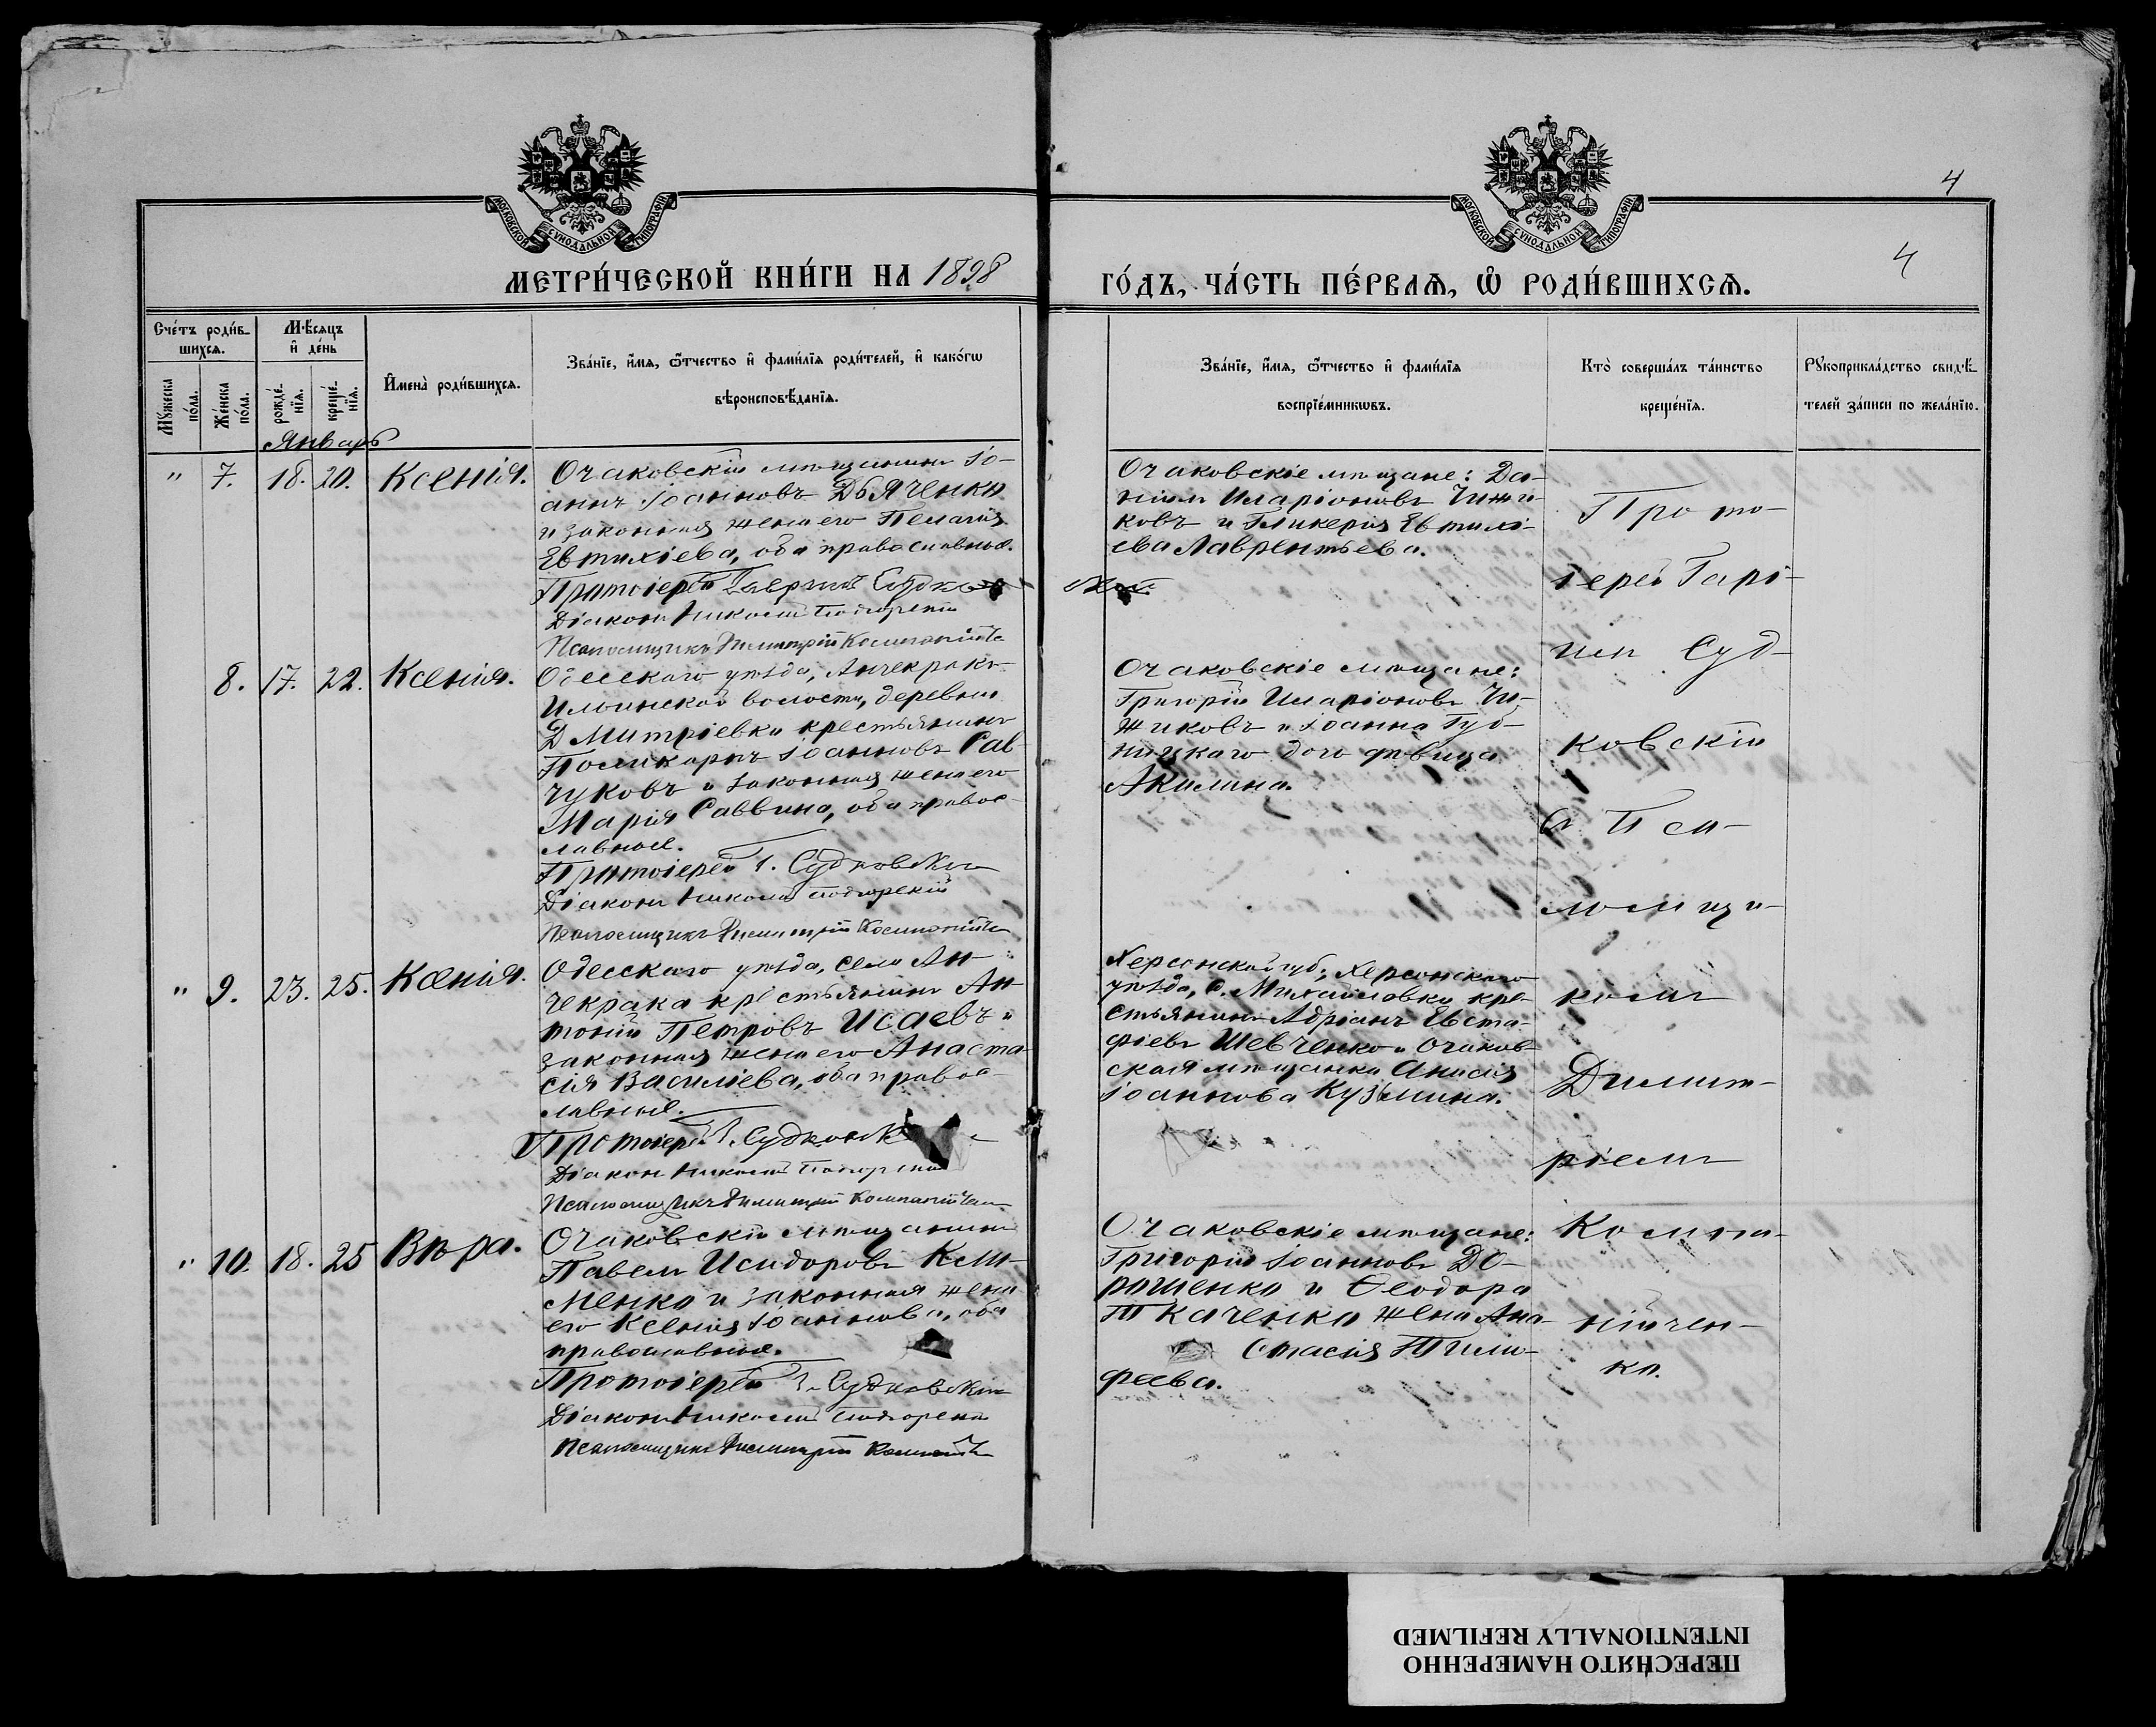 4
МОСКОВСКОЙ СѴНОДАЛЬНОЙ ТИПОГРАФІИ
МОСКОВСКОЙ СѴНОДАЛЬНОЙ ТИПОГРАФІИ
4
МЕТРИ́ЧЕСКОЙ КНИ́ГИ НА 1898
ГО́ДЪ, ЧА́СТЬ ПЕ́РВАѦ, Ѡ҆ РОДИ́ВШИХСѦ.
Сче́тъ роди́в-
шихсѧ.
Мѣ́сяцъ
и҆ де́нь
Мꙋ́жеска
по́ла.
Же́нска
по́ла.
рожде́-
нїѧ.
креще́-
нїѧ.
И҆мена̀ роди́вшихсѧ.
Зва́нїе, и҆́мѧ, ѻ҆́тчество и҆ фами́лїѧ роди́телей, и҆ како́гѡ
вѣроисповѣ́данїѧ.
Зва́нїе, и҆́мѧ, ѻ҆́тчество и҆ фами́лїѧ
воспрїе́мникѡвъ.
Кто̀ соверша́лъ та́инство
креще́нїѧ.
Рꙋкоприкла́дство свидѣ́-
телей за́писи по жела́нїю.
Январь
" 7. 18. 20. Ксенія.
Очаковскій мѣщанинъ Іо-
аннъ Іоанновъ Дьяченко
и законная жена его Пелагія
Евтихіева, оба православные.
Протоіерей Гавріилъ Судков
Діаконъ Николай Подгорскій
Псаломщикъ Димитрій
Очаковскіе мѣщане: Да-
ніилъ Иларіоновъ Чижи-
ковъ и Гликерія Евтихі-
ева Лаврентьева.
8. 17. 22. Ксенія.
Одесскаго уѣзда, Анчекрако-
Ильинской волости, деревни
Дмитріевки крестьянинъ
Поликарпъ Іоанновъ Сав-
чуковъ и законная жена его
Марія Саввина, оба правос-
лавные.
Протоіерей Г. Судковскій
Діаконъ Николай Подгорскій
Псаломщикъ Димитрій
Очаковскіе мѣщане:
Григорій Иларіоновъ Чи-
жиковъ и Іоанна Губ-
ницкаго дочь дѣвица
Акилина.
" 9. 23. 25. Ксенія.
Одесскаго уѣзда, села Ан-
чекрака крестьянинъ Ан-
тоній Петровъ Исаевъ и
законная жена его Анаста-
сія Василіева, оба правос-
лавные.
Протоіерей Г. Судковск
Діаконъ Николай Подгорскій
Псаломщикъ Димитрій
Херсонской губ., Херсонскаго
уѣзда, с. Михайловки кре-
стьянинъ Адріанъ Евста-
фіевъ Шевченко и Очаков-
ская мѣщанка Анисія
Іоаннова Кузьмина.
" 10. 18. 25 Вѣра.
Очаковскій мѣщанинъ
Павелъ Исидоровъ Кли-
менко и законная жена
его Ксенія Іоаннова, оба
православные.
Протоіерей Г. Судковскій
Діаконъ Николай Подгорскій
Псаломщикъ Димитрій
Очаковскіе мѣщане:
Григорій Іоанновъ До-
рошенко и Ѳеодора
Ткаченко жена Ана-
стасія Тимо-
феева.
Прото-
іерей Гаврі-
илъ Суд-
ковскій
съ Пса-
ломщи-
комъ
Димит-
ріемъ
Компа-
нійчен-
ко.
ПЕРЕСНЯТО НАМЕРЕННО
INTENTIONALLY REFILMED